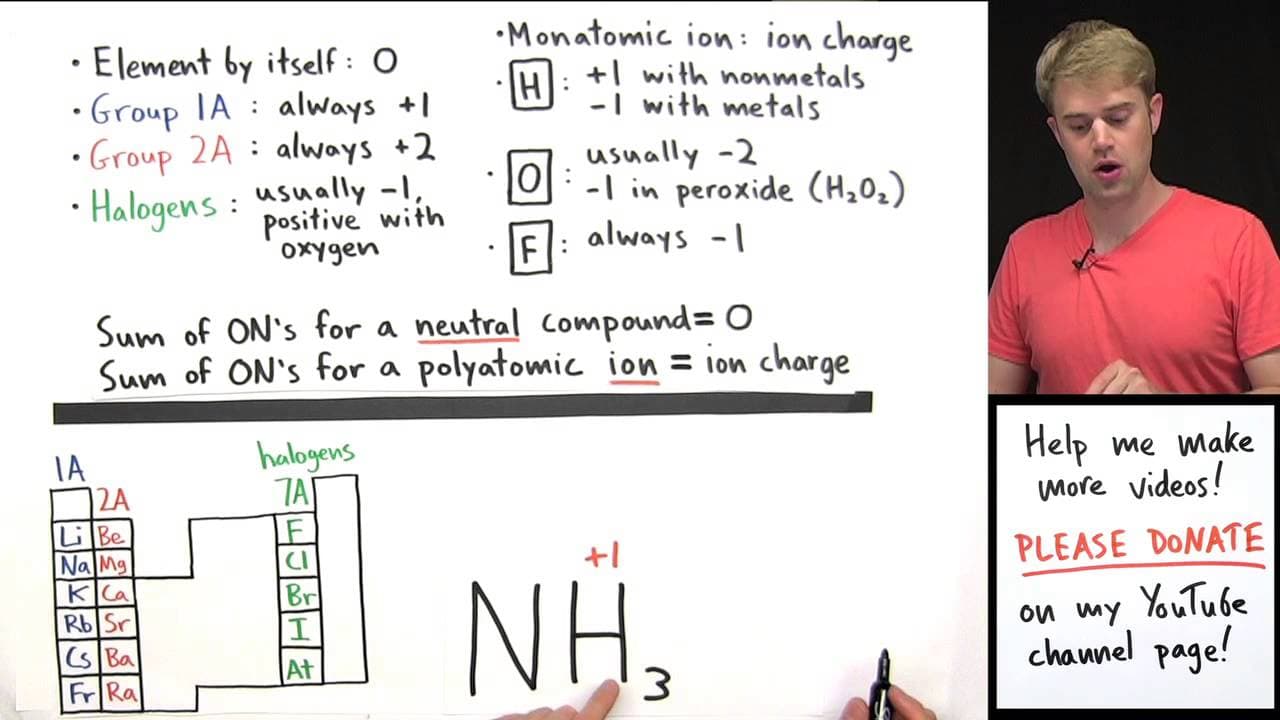 • Element by itself: 0
• Group 1A: always +1
• Group 2A: always +2
• Halogens: usually -1,
positive with
oxygen
• Monatomic ion: ion charge
• H: +1 with nonmetals
-1 with metals
• O: usually -2
-1 in peroxide (H₂O₂)
• F: always -1
Sum of ON's for a neutral compound = 0
Sum of ON's for a polyatomic ion = ion charge
1A
2A
halogens
7A
Li Be
Na Mg
K Ca
Rb Sr
Cs Ba
Fr Ra
F
Cl
Br
I
At
+1
NH₃
Help me make
more videos!
PLEASE DONATE
on my YouTube
channel page!